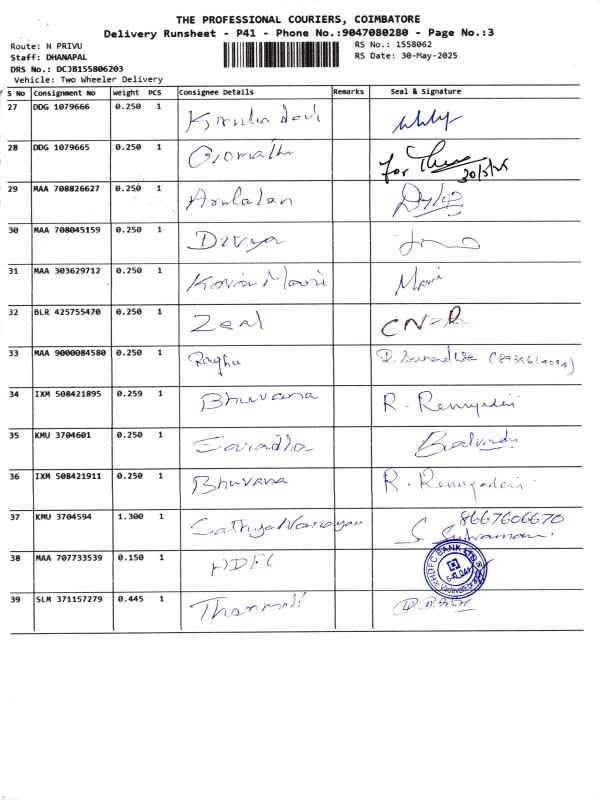 THE PROFESSIONAL COURIERS, COIMBATORE
Delivery Runsheet - P41 - Phone No.:9047080280 - Page No.:3
Route: N PRIVU
RS No.: 1558062
Staff: DHANAPAL
RS Date: 30-May-2025
DRS No.: DCJB155806203
Vehicle: Two Wheeler Delivery
S No Consignment No Weight PCS Consignee Details Remarks Seal & Signature
27 DDG 1079666 0.250 1
28 DDG 1079665 0.250 1 Gomathi for 30/5/25
29 MAA 708826627 0.250 1 Arulalan
30 MAA 708045159 0.250 1 Divya
31 MAA 303629712 0.250 1 Mani
32 BLR 425755470 0.250 1 Zeal
33 MAA 9000084580 0.250 1 Raghu
34 IXM 508421895 0.259 1 Bhuvana R. Renugadevi
35 KMU 3704601 0.250 1
36 IXM 508421911 0.250 1 Bhuvana R. Renugadevi
37 KMU 3704594 1.300 1 SathyaNarayan 8667606670
38 MAA 707733539 0.150 1 HDFC HDFC BANK LTD
39 SLM 371157279 0.445 1